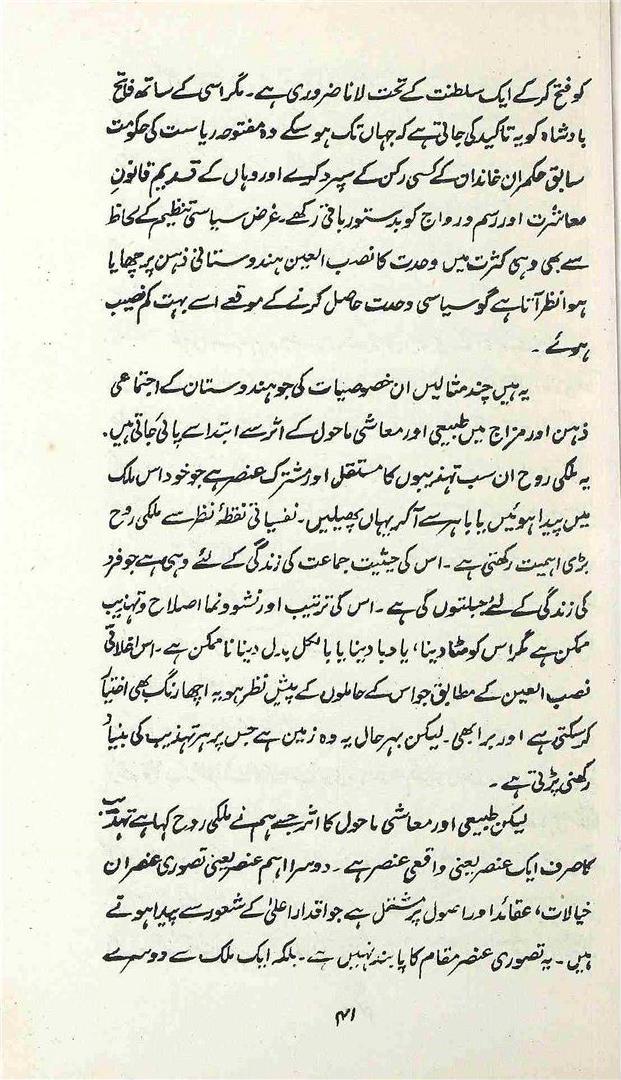 کو فتح کر کے ایک سلطنت کے تحت لانا ضروری ہے۔ مگر اسی کے ساتھ فاتح
بادشاہ کو یہ تاکید کی جاتی ہے کہ جہاں تک ہو سکے وہ مفتوحہ ریاست کی حکومت
سابق حکمران خاندان کے کسی رکن کے سپرد کرے اور وہاں کے قدیم قانونِ
معاشرت اور رسم و رواج کو بدستور باقی رکھے۔ غرض سیاسی تنظیم کے لحاظ
سے بھی وہی کثرت میں وحدت کا نصب العین ہندوستانی ذہن پر چھایا
ہوا نظر آتا ہے گو سیاسی وحدت حاصل کرنے کے موقعے اسے بہت کم نصیب
ہوئے۔
یہ ہیں چند مثالیں ان خصوصیات کی جو ہندوستان کے اجتماعی
ذہن اور مزاج میں طبیعی اور معاشی ماحول کے اثر سے ابتدا سے پائی جاتی ہیں.
یہ ملکی روح ان سب تہذیبوں کا مستقل اور مشترک عنصر ہے جو خود اس ملک
میں پیدا ہوئیں یا باہر سے آکر یہاں پھیلیں۔ نفسیاتی نقطۂ نظر سے ملکی روح
بڑی اہمیت رکھتی ہے۔ اس کی حیثیت جماعت کی زندگی کے لئے وہی ہے جو فرد
کی زندگی کے لئے جبلتوں کی ہے۔ اس کی ترتیب اور نشوونما اصلاح و تہذیب
ممکن ہے مگر اس کو مٹا دینا، یا دبا دینا یا بالکل بدل دینا ناممکن ہے۔ اس اخلاقی
نصب العین کے مطابق جو اس کے حاملوں کے پیش نظر ہو یہ اچھا رنگ بھی اختیار
کر سکتی ہے اور برا بھی۔ لیکن بہرحال یہ وہ زمین ہے جس پر ہر تہذیب کی بنیاد
رکھنی پڑتی ہے۔
لیکن طبیعی اور معاشی ماحول کا اثر جسے ہم نے ملکی روح کہا ہے تہذیب
کا صرف ایک عنصر یعنی واقعی عنصر ہے۔ دوسرا اہم عنصر یعنی تصوری عنصر ان
خیالات، عقائد اور اصول پر مشتمل ہے جو اقدار اعلیٰ کے شعور سے پیدا ہوتے
ہیں۔ یہ تصوری عنصر مقام کا پابند نہیں ہے۔ بلکہ ایک ملک سے دوسرے
۴۱